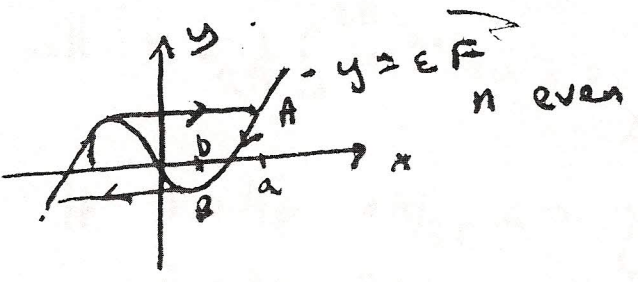 y
y = εF
n even
A
b
x
B
a